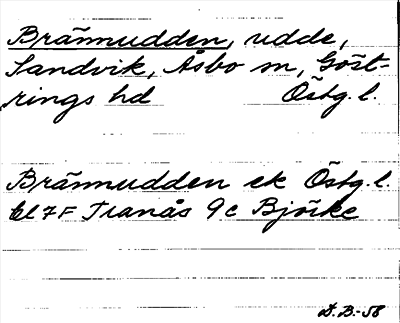 Brännudden, udde,
Sandvik, Åsbo sn, Göst-
rings hd Östg. l.
Brännudden ek Östg. l.
bl 7F Tranås 9c Björke
D. B.-58